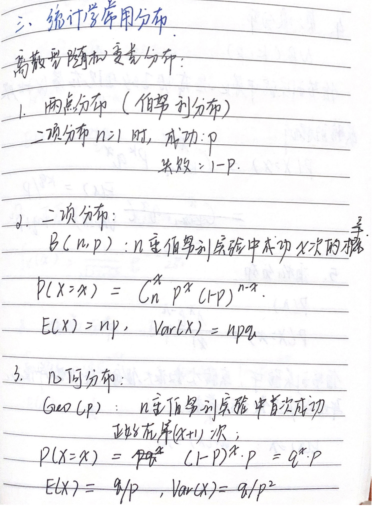 三、统计学常用分布.
离散型随机变量分布:
1. 两点分布 (伯努利分布)
二项分布 n=1 时, 成功:p
失败:1-p.
2. 二项分布:
B(n,p) : n重伯努利实验中成功x次的概率.
P(X=x) = Cₙˣ pˣ (1-p)ⁿ⁻ˣ.
E(X) = np, Var(X) = npq
3. 几何分布:
Geo(p) : n重伯努利实验中首次成功
正好在第(x+1)次;
P(X=x) = (1-p)ˣ·p = qˣ·p
E(X) = q/p , Var(X) = q/p²